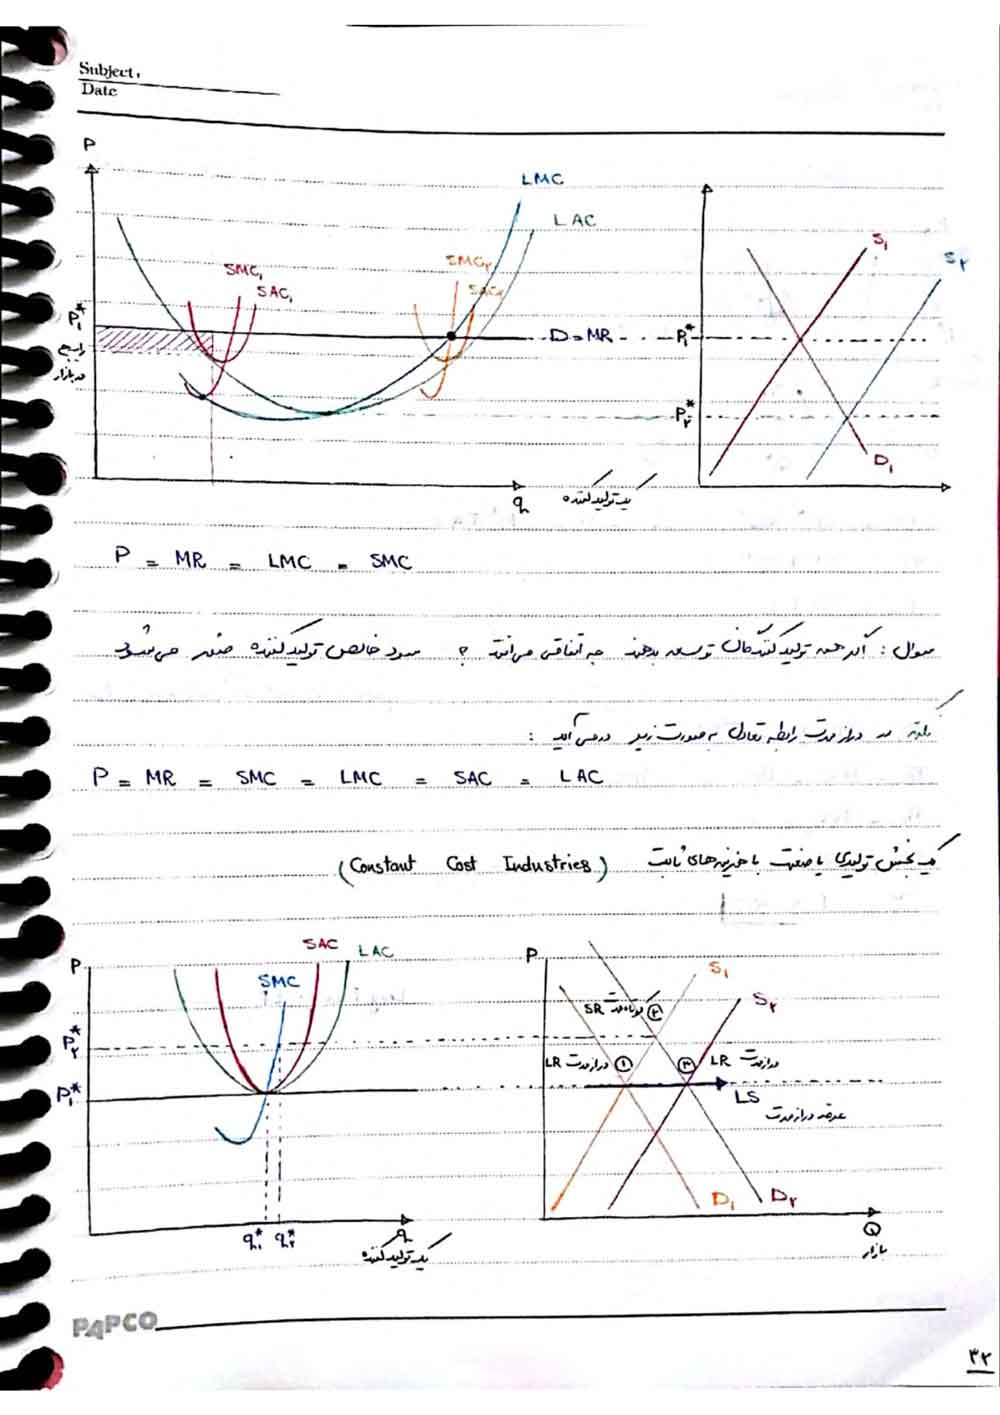 Subject:
Date
P
LMC
LAC
SMC₁
SAC₁
SMC۲
SAC۲
P₁*
رایج
در بازار
D = MR
q
یک تولید کننده
P₁*
P۲*
S₁
S۲
D₁
P = MR = LMC = SMC
سوال : اگر همه تولید کنندگان توسعه بدهند چه اتفاقی می‌افتد ؟ سود خالص تولید کننده صفر می‌شود
نکته در دراز مدت رابطه تعادل به صورت زیر در می‌آید :
P = MR = SMC = LMC = SAC = LAC
یک بخش تولیدی یا صنعت با هزینه‌های ثابت (Constant Cost Industries)
P
SAC
LAC
SMC
P۲*
P₁*
q₁* q۲*
q
یک تولید کننده
P
S₁
S۲
SR کوتاه مدت ②
LR دراز مدت ①
③ LR دراز مدت
LS
عرضه دراز مدت
D₁
D۲
Q
بازار
PAPCO
۳۲